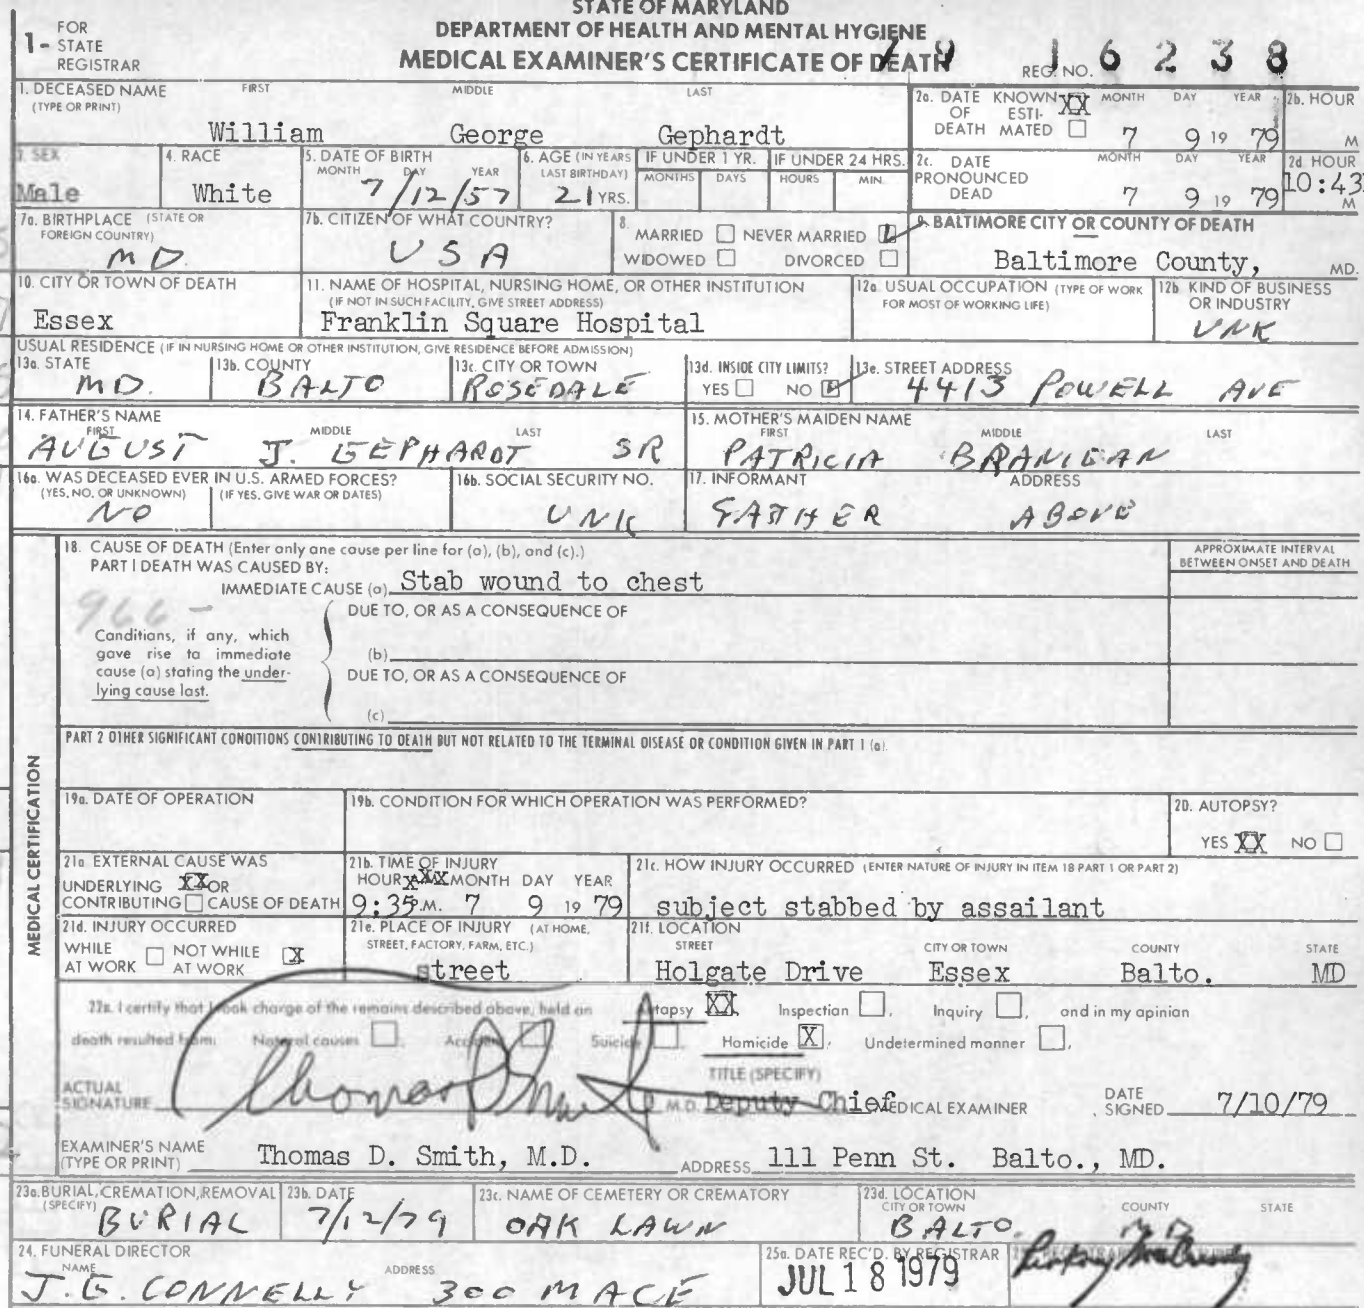 STATE OF MARYLAND
DEPARTMENT OF HEALTH AND MENTAL HYGIENE
MEDICAL EXAMINER'S CERTIFICATE OF DEATH
1- FOR STATE REGISTRAR
REG. NO. 16238
1. DECEASED NAME (TYPE OR PRINT) FIRST MIDDLE LAST
William George Gephardt
2a. DATE OF DEATH KNOWN XX ESTIMATED MONTH DAY YEAR
7 9 19 79
2b. HOUR M
3. SEX
Male
4. RACE
White
5. DATE OF BIRTH MONTH DAY YEAR
7/12/57
6. AGE (IN YEARS LAST BIRTHDAY)
21 YRS.
IF UNDER 1 YR. MONTHS DAYS
IF UNDER 24 HRS. HOURS MIN.
2c. DATE PRONOUNCED DEAD MONTH DAY YEAR
7 9 19 79
2d HOUR
10:43 M
7a. BIRTHPLACE (STATE OR FOREIGN COUNTRY)
MD.
7b. CITIZEN OF WHAT COUNTRY?
USA
8. MARRIED NEVER MARRIED
WIDOWED DIVORCED
9. BALTIMORE CITY OR COUNTY OF DEATH
Baltimore County, MD.
10. CITY OR TOWN OF DEATH
Essex
11. NAME OF HOSPITAL, NURSING HOME, OR OTHER INSTITUTION
(IF NOT IN SUCH FACILITY, GIVE STREET ADDRESS)
Franklin Square Hospital
12a USUAL OCCUPATION (TYPE OF WORK FOR MOST OF WORKING LIFE)
12b KIND OF BUSINESS OR INDUSTRY
UNK
USUAL RESIDENCE (IF IN NURSING HOME OR OTHER INSTITUTION, GIVE RESIDENCE BEFORE ADMISSION)
13a. STATE
MD.
13b. COUNTY
BALTO
13c. CITY OR TOWN
ROSEDALE
13d. INSIDE CITY LIMITS?
YES NO
13e. STREET ADDRESS
4413 POWELL AVE
14. FATHER'S NAME FIRST MIDDLE LAST
AUGUST J. GEPHARDT SR
15. MOTHER'S MAIDEN NAME FIRST MIDDLE LAST
PATRICIA BRANIGAN
16a. WAS DECEASED EVER IN U.S. ARMED FORCES?
(YES, NO, OR UNKNOWN) (IF YES, GIVE WAR OR DATES)
NO
16b. SOCIAL SECURITY NO.
UNK
17. INFORMANT ADDRESS
FATHER ABOVE
MEDICAL CERTIFICATION
18. CAUSE OF DEATH (Enter only one cause per line for (a), (b), and (c).)
PART I DEATH WAS CAUSED BY:
IMMEDIATE CAUSE (a) Stab wound to chest
APPROXIMATE INTERVAL BETWEEN ONSET AND DEATH
966-
DUE TO, OR AS A CONSEQUENCE OF
Conditions, if any, which gave rise to immediate cause (a) stating the underlying cause last.
(b)
DUE TO, OR AS A CONSEQUENCE OF
(c)
PART 2 OTHER SIGNIFICANT CONDITIONS CONTRIBUTING TO DEATH BUT NOT RELATED TO THE TERMINAL DISEASE OR CONDITION GIVEN IN PART 1 (a).
19a. DATE OF OPERATION
19b. CONDITION FOR WHICH OPERATION WAS PERFORMED?
20. AUTOPSY?
YES XX NO
21a EXTERNAL CAUSE WAS
UNDERLYING XX OR
CONTRIBUTING CAUSE OF DEATH
21b. TIME OF INJURY
HOUR XXX MONTH DAY YEAR
9:35 P.M. 7 9 19 79
21c. HOW INJURY OCCURRED (ENTER NATURE OF INJURY IN ITEM 18 PART 1 OR PART 2)
subject stabbed by assailant
21d. INJURY OCCURRED
WHILE AT WORK NOT WHILE AT WORK X
21e. PLACE OF INJURY (AT HOME, STREET, FACTORY, FARM, ETC.)
street
21f. LOCATION STREET CITY OR TOWN COUNTY STATE
Holgate Drive Essex Balto. MD
22a. I certify that I took charge of the remains described above, held an Autopsy XX, Inspection, Inquiry, and in my opinion
death resulted from: Natural causes, Accident, Suicide, Homicide X, Undetermined manner,
TITLE (SPECIFY)
ACTUAL SIGNATURE Thomas D Smith M.D. Deputy Chief MEDICAL EXAMINER
DATE SIGNED 7/10/79
EXAMINER'S NAME (TYPE OR PRINT) Thomas D. Smith, M.D.
ADDRESS 111 Penn St. Balto., MD.
23a. BURIAL, CREMATION, REMOVAL (SPECIFY)
BURIAL
23b. DATE
7/12/79
23c. NAME OF CEMETERY OR CREMATORY
OAK LAWN
23d. LOCATION CITY OR TOWN COUNTY STATE
BALTO. MD
24. FUNERAL DIRECTOR
NAME ADDRESS
J.G. CONNELLY 300 MACE
25a. DATE REC'D. BY REGISTRAR
JUL 18 1979